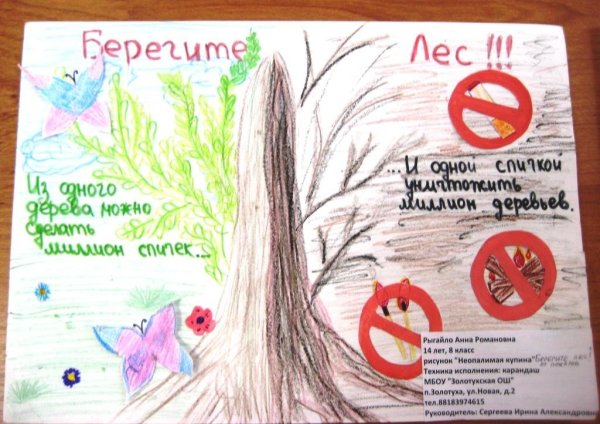 Берегите Лес !!!
Из одного
дерева можно
сделать
миллион спичек...
...И одной спичкой
уничтожить
миллион деревьев.
Рыгайло Анна Романовна
14 лет, 8 класс
рисунок "Неопалимая купина"
Техника исполнения: карандаш
МБОУ "Золотухская ОШ"
п.Золотуха, ул.Новая, д.2
тел.88183974615
Руководитель: Сергеева Ирина Александровна
Берегите лес!
от пожара